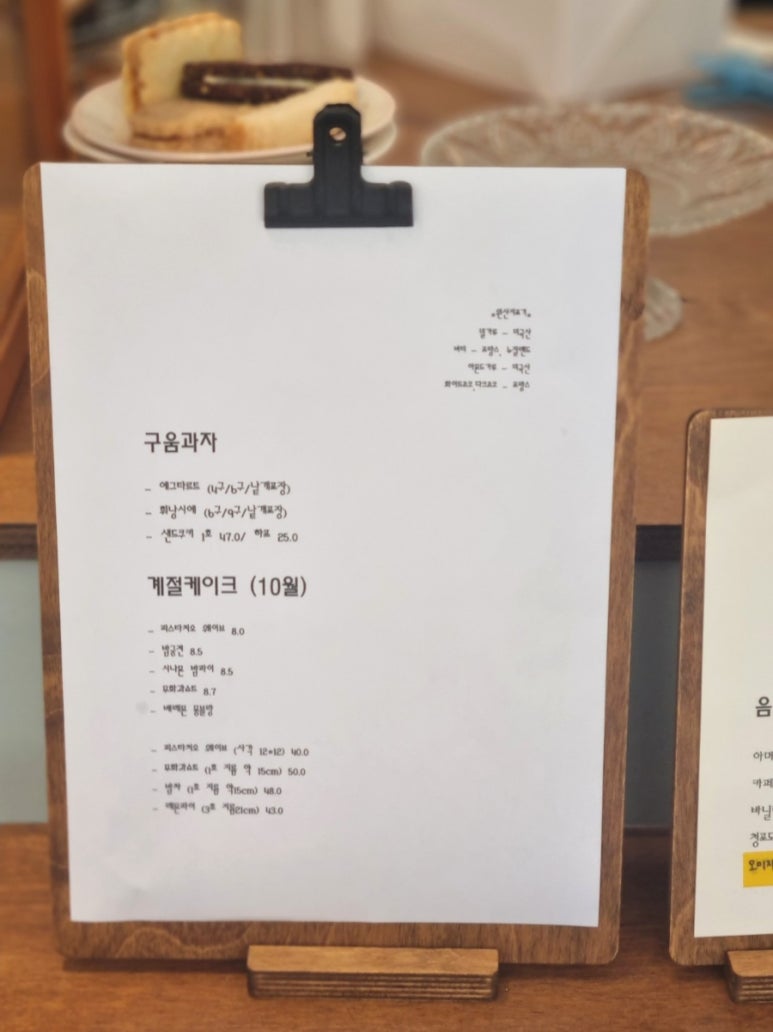 *원산지표기*
밀가루 - 미국산
버터 - 프랑스, 뉴질랜드
아몬드가루 - 미국산
화이트초코,다크초코 - 프랑스
구움과자
- 에그타르트 (4구/6구/낱개포장)
- 휘낭시에 (6구/9구/낱개포장)
- 샌드쿠키 1호 47.0/ 하프 25.0
계절케이크 (10월)
- 피스타치오 웨이브 8.0
- 밤공전 8.5
- 시나몬 밤파이 8.5
- 무화과쇼트 8.7
- 바레몬 몽블랑
- 피스타치오 웨이브 (사각 12*12) 40.0
- 무화과쇼트 (1호 지름 약 15cm) 50.0
- 밤차 (1호 지름 약15cm) 48.0
- 레몬파이 (3호 지름21cm) 43.0
음
아메
카페
바닐
청포도
오미자